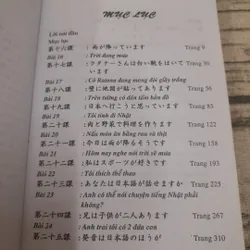 MỤC LỤC
Lời nói đầu
Mục lục
第十六課 : 雨が降っています Trang 9
Bài 16 : Trời đang mưa
第十七課 : ラタナーさんは白い靴をはいています Trang 36
Bài 17 : Cô Ratana đang mang đôi giày trắng
第十八課 : 壁に地図が貼ってあります Trang 56
Bài 18 : Trên tường có dán tấm bản đồ
第十九課 : 日本へ行こうと思っています Trang 122
Bài 19 : Tôi tính đi Nhật
第二十課 : 肉と野菜で料理を作ります Trang 122
Bài 20 : Nấu món ăn bằng rau và thịt
第二十一課 : 今日は雨が降るそうです Trang 153
Bài 21 : Hôm nay nghe nói trời sẽ mưa
第二十二課 : 私はスポーツが好きです Trang 193
Bài 22 : Tôi thích thể thao
第二十三課 : あなたは日本語が話せますか Trang 225
Bài 23 : Anh có thể nói chuyện tiếng Nhật phải
không?
第二十四課 : 兄は子供が二人あります Trang 267
Bài 24 : Anh trai tôi có 2 đứa con
第二十五課 : 発音は日本語のほうが Trang 310